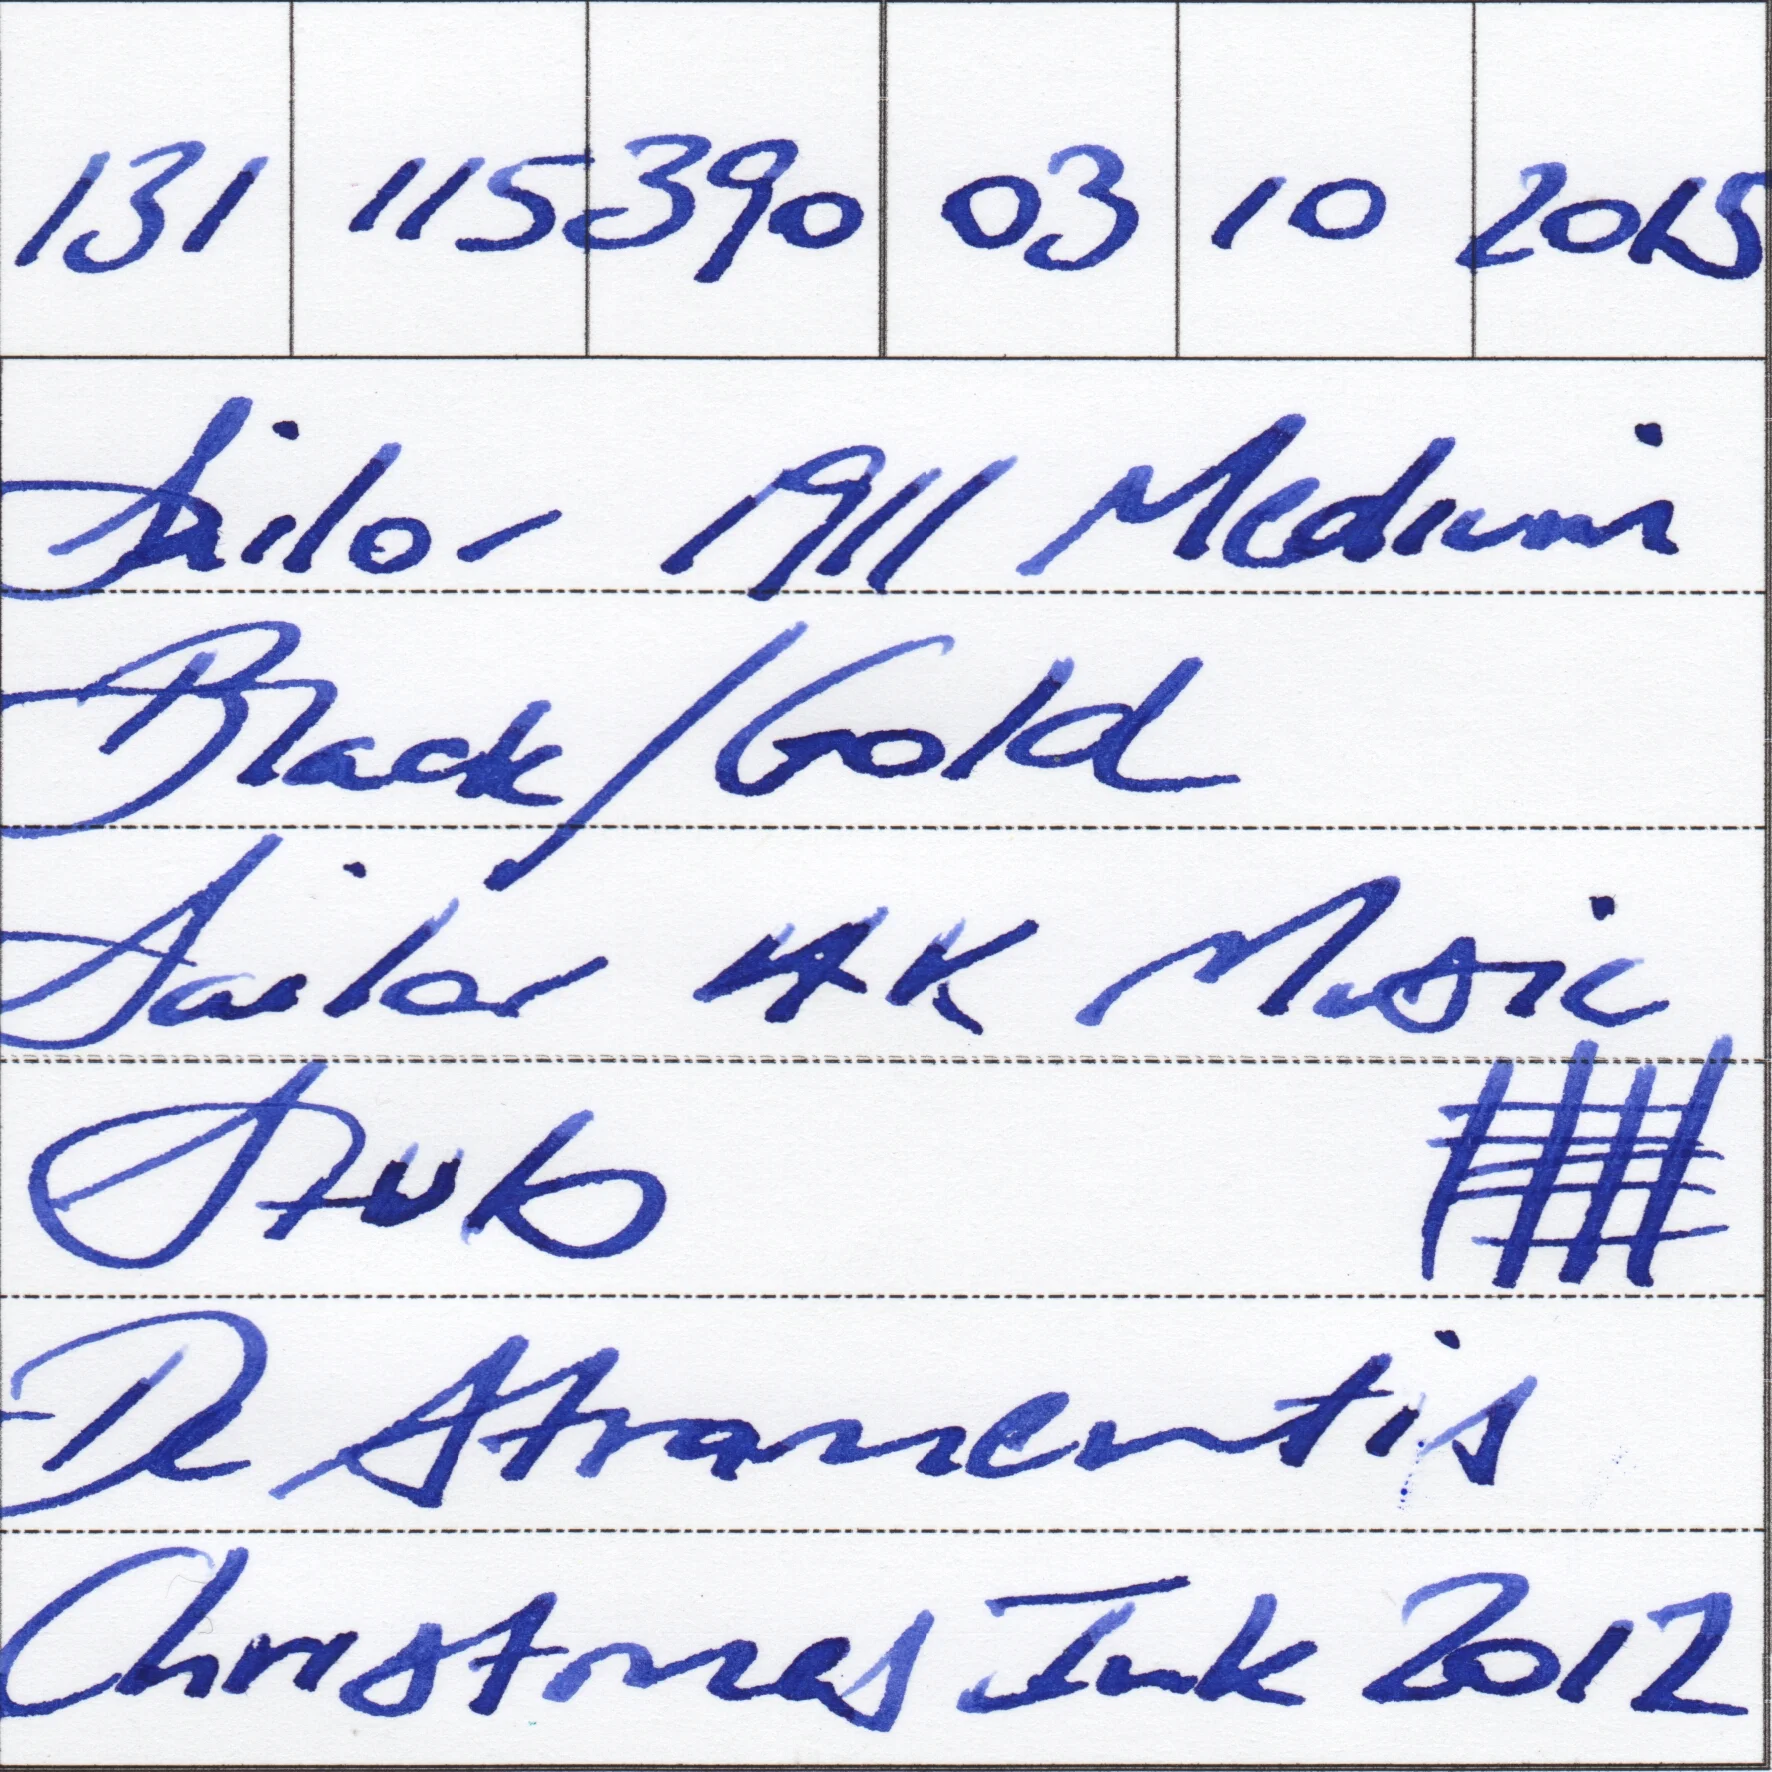 131 115390 03 10 2015
Sailor 1911 Medium
Black/Gold
Sailor 14K Music
Stub
De Atramentis
Christmas Ink 2012